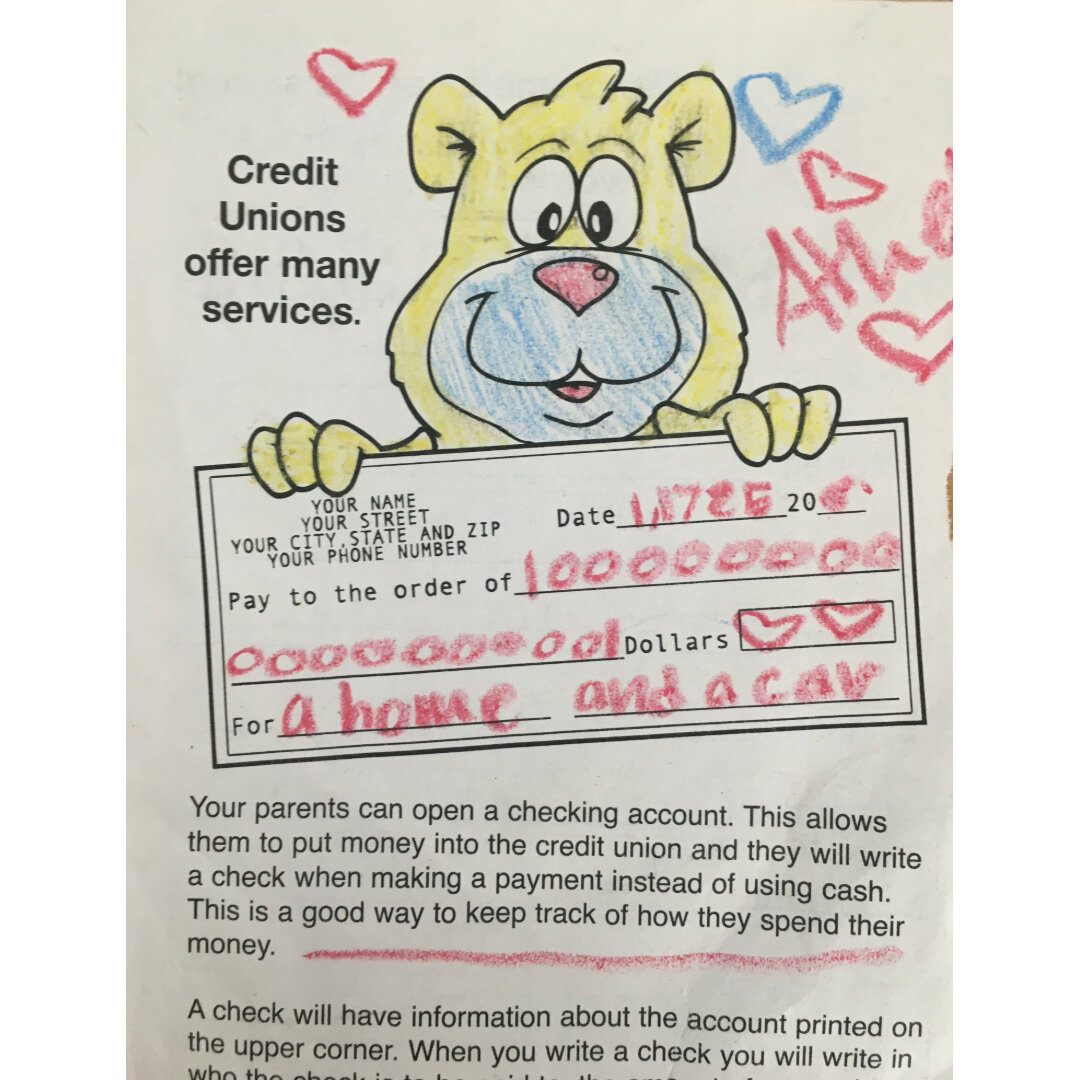 Credit
Unions
offer many
services.
YOUR NAME
YOUR STREET
YOUR CITY, STATE AND ZIP
YOUR PHONE NUMBER
Date 20
Pay to the order of 1000000000
Dollars
For a home and a car
Your parents can open a checking account. This allows
them to put money into the credit union and they will write
a check when making a payment instead of using cash.
This is a good way to keep track of how they spend their
money.
A check will have information about the account printed on
the upper corner. When you write a check you will write in